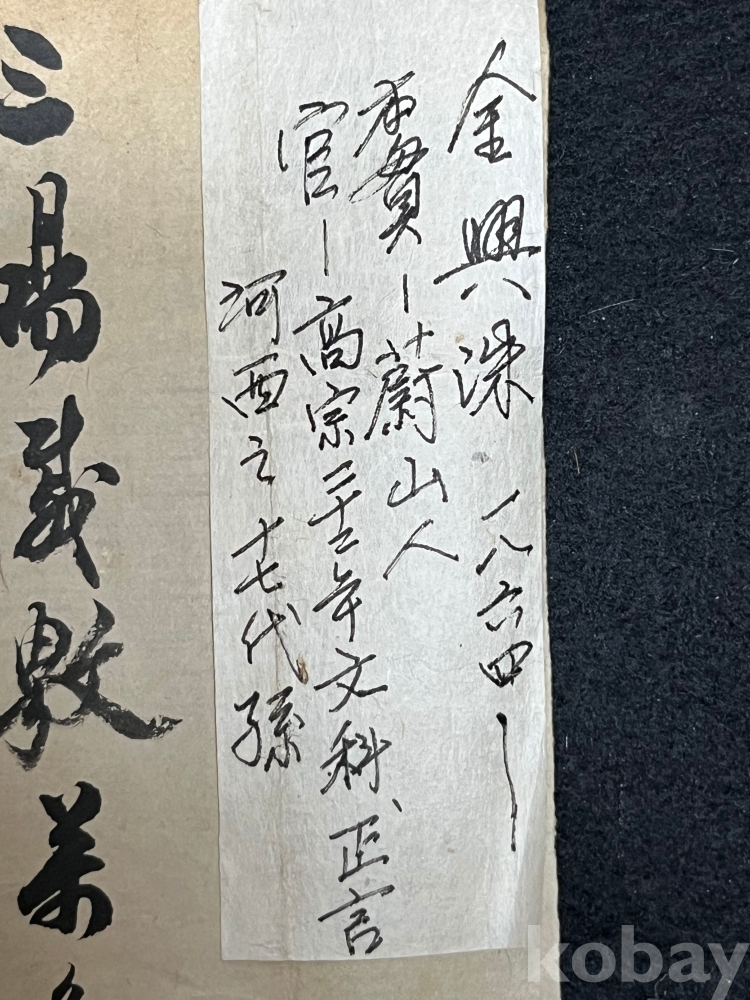 金興洙 一八六四ー
本貫ー蔚山人
官ー高宗二十二年文科、正言
河西之十七代孫
三陽
kobay